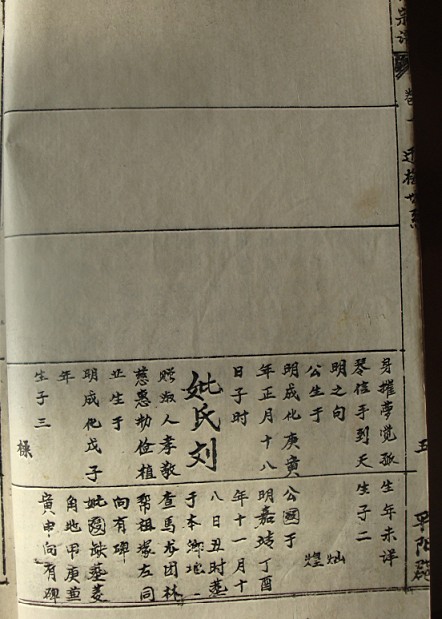 身摧夢覺孤
琴信手到天
明之句
公生于
明成化庚寅
年正月十八
日子时
妣氏刘
赠淑人孝敬
慈惠勤俭植
业生于
明成化戊子
年
生子三
樑
生年未详
生子二
灿
煌
公圆于
明嘉靖丁酉
年十一月十
八日丑时葬
于本乡地
查馬龙团林
帮祖塚左同
向有碑
妣殁缺葬菱
角地甲庚兼
寅申向有碑
卷一
五